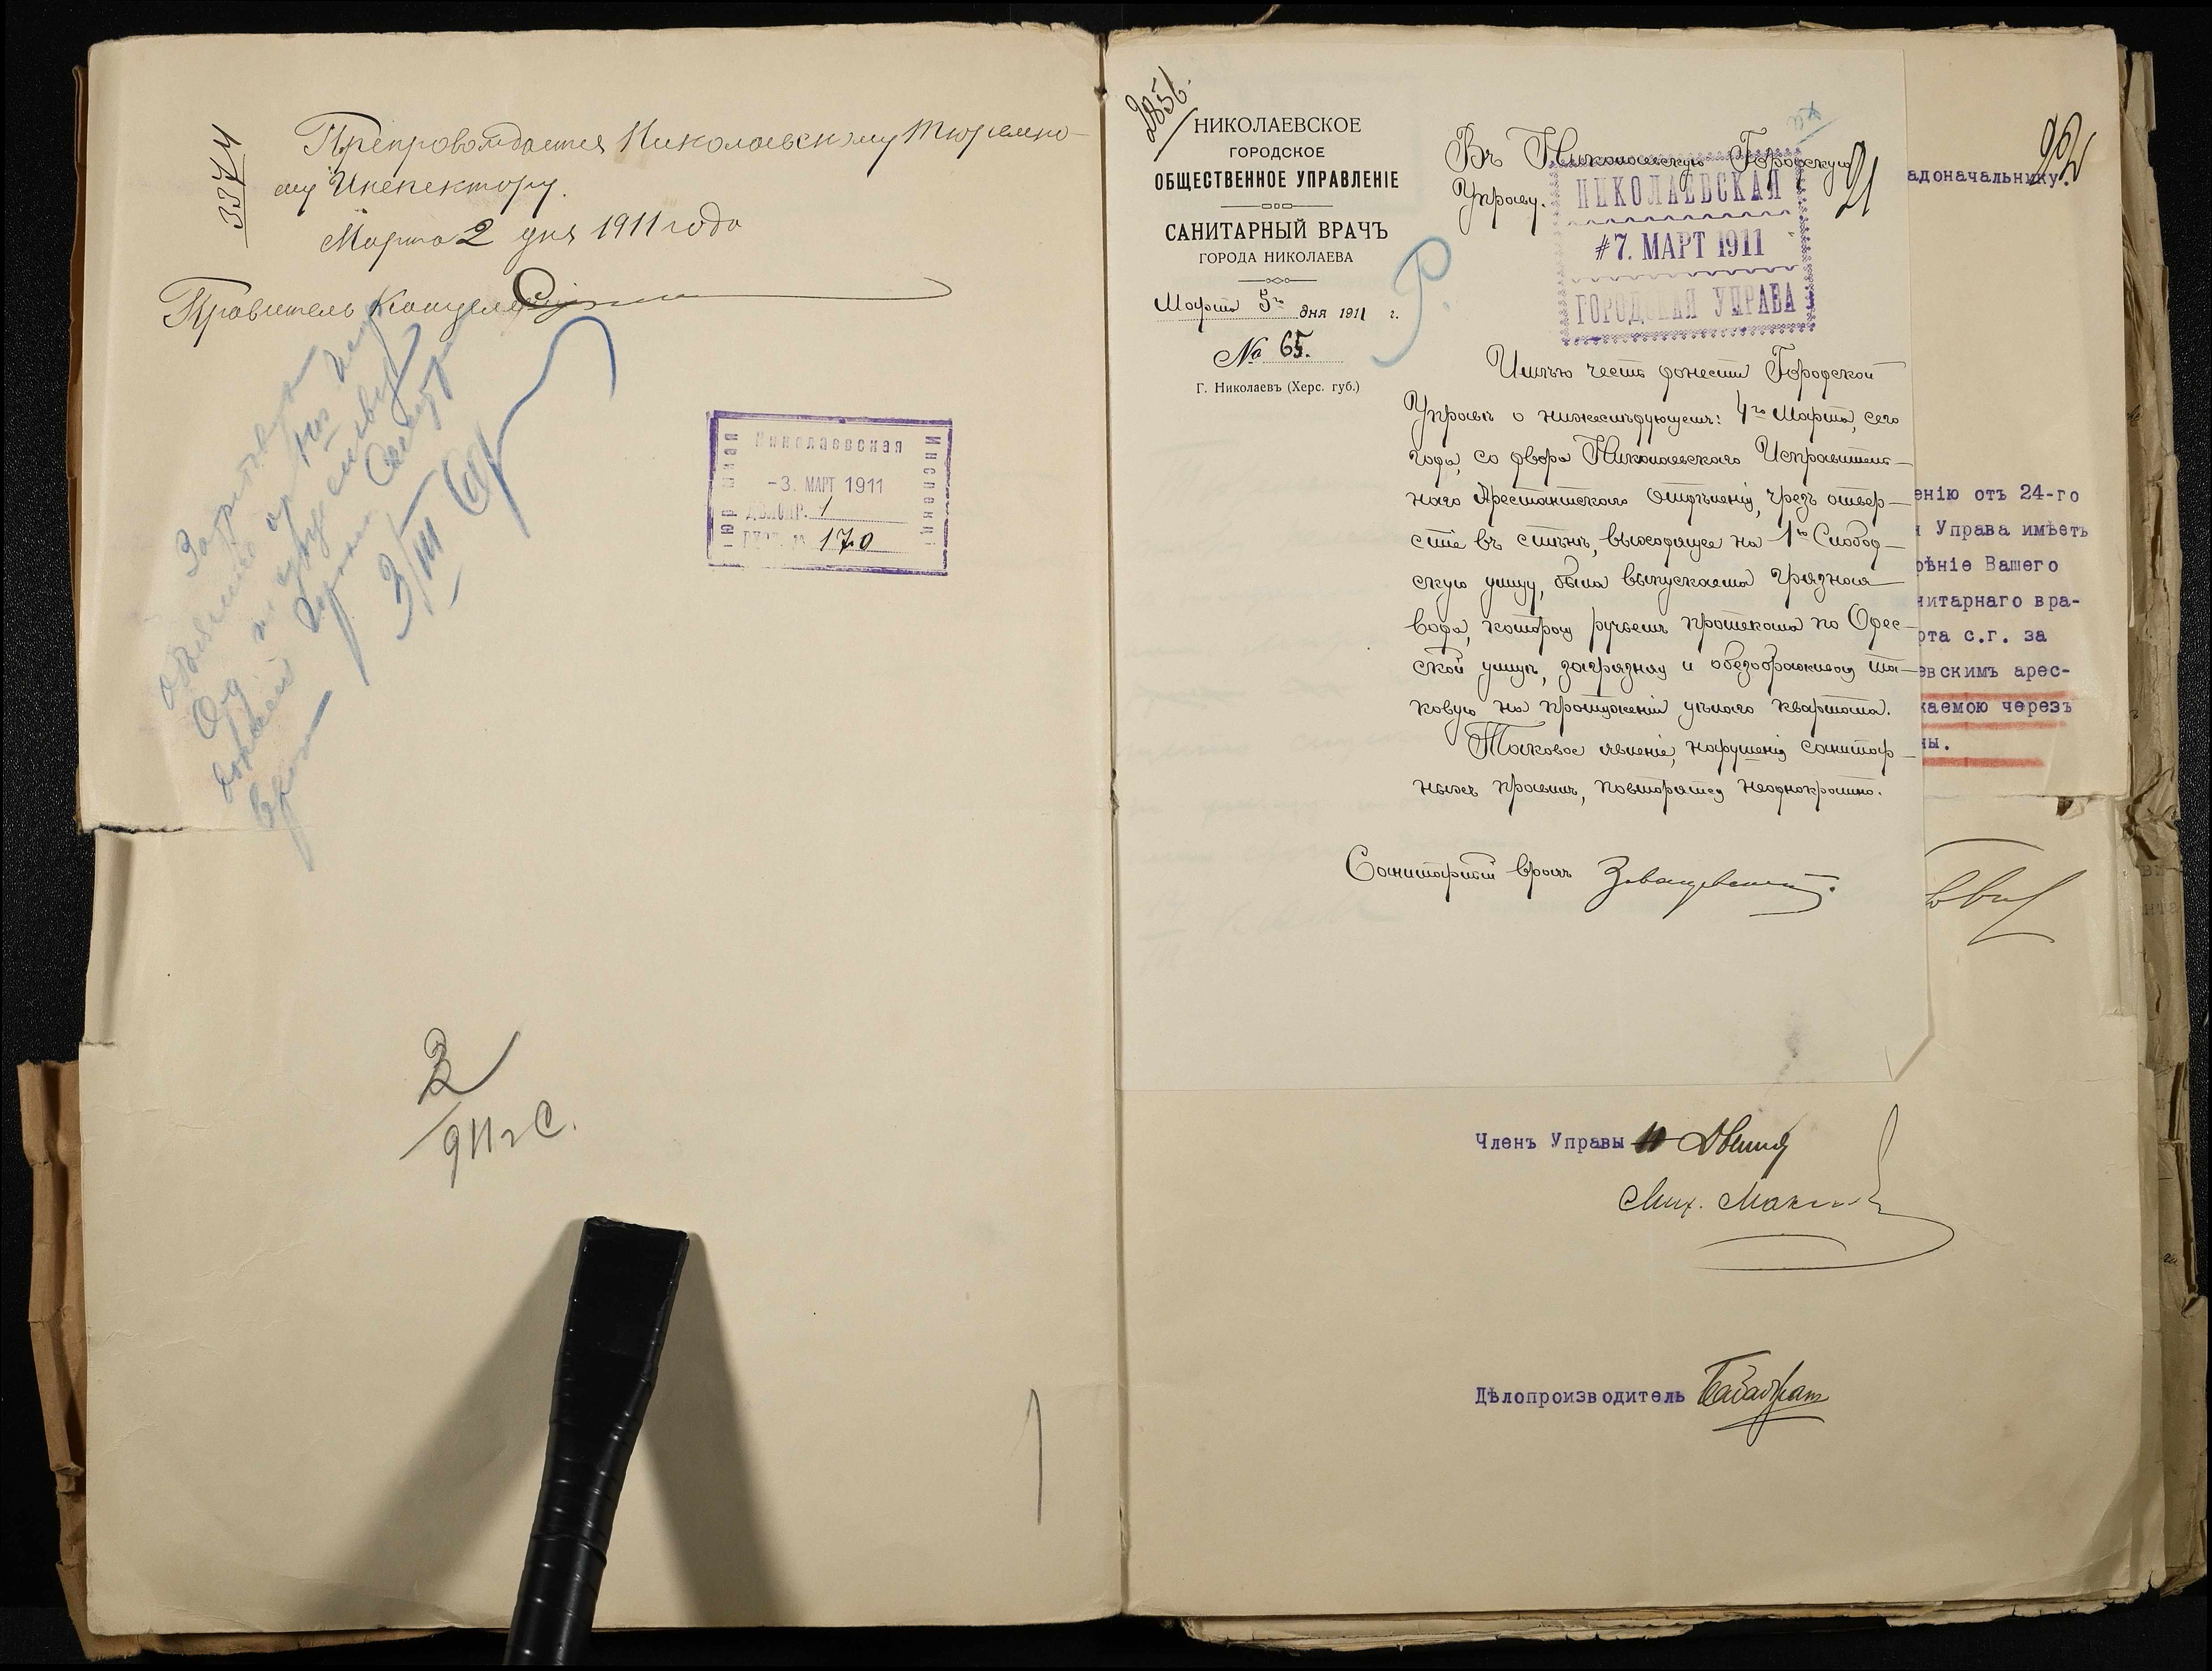 3374
Препровождается Николаевскому Тюремно-
му Инспектору.
Марта 2 дня 1911 года
Правитель Канцеля
3/III
Николаевская
Тюремная
Инспекція
-3. МАРТ 1911
ДѢЛОПР. 1
170
3
911 г С.
2856.
НИКОЛАЕВСКОЕ
ГОРОДСКОЕ
ОБЩЕСТВЕННОЕ УПРАВЛЕНІЕ
САНИТАРНЫЙ ВРАЧЪ
ГОРОДА НИКОЛАЕВА
Марта 5го дня 1911 г.
№ 65.
Г. Николаевъ (Херс. губ.)
Въ Николаевскую Городскую
Управу.
91
НИКОЛАЕВСКАЯ
#7. МАРТ 1911
ГОРОДСКАЯ УПРАВА
Имѣю честь донести Городской
Управѣ о нижеслѣдующемъ: 4го Марта, сего
года, со двора Николаевскаго Исправитель-
наго Арестантскаго Отдѣленія, чрезъ отвер-
стіе въ стѣнѣ, выходящее на 1ю Слобод-
скую улицу, была выпускаема грязная
вода, которая ручьемъ протекала по Одес-
ской улицѣ, загрязняя и обезображивая та-
ковую на протяженіи цѣлаго квартала.
Таковое явленіе, нарушенія санитар-
ныхъ правилъ, повторяется неоднократно.
Санитарный врачъ
92
адоначальнику.
енію отъ 24-го
я Управа имѣетъ
рѣніе Вашего
нитарнаго вра-
рта с.г. за
евскимъ арес-
каемою черезъ
ны.
Членъ Управы
Мих.
Дѣлопроизводитель